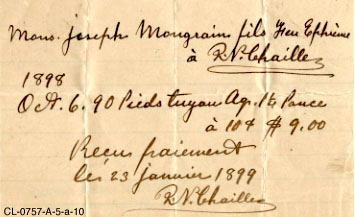 Mons. Joseph Mongrain fils Feu Ephrème
à P. N. Chaillez
1898
Oct. 6. 90 Pieds tuyau Aq. 1¼ Pouce
à 10¢ $ 9.00
Recu paiement
les 23 janvier 1899
P. N. Chaillez
CL-0757-A-5-a-10